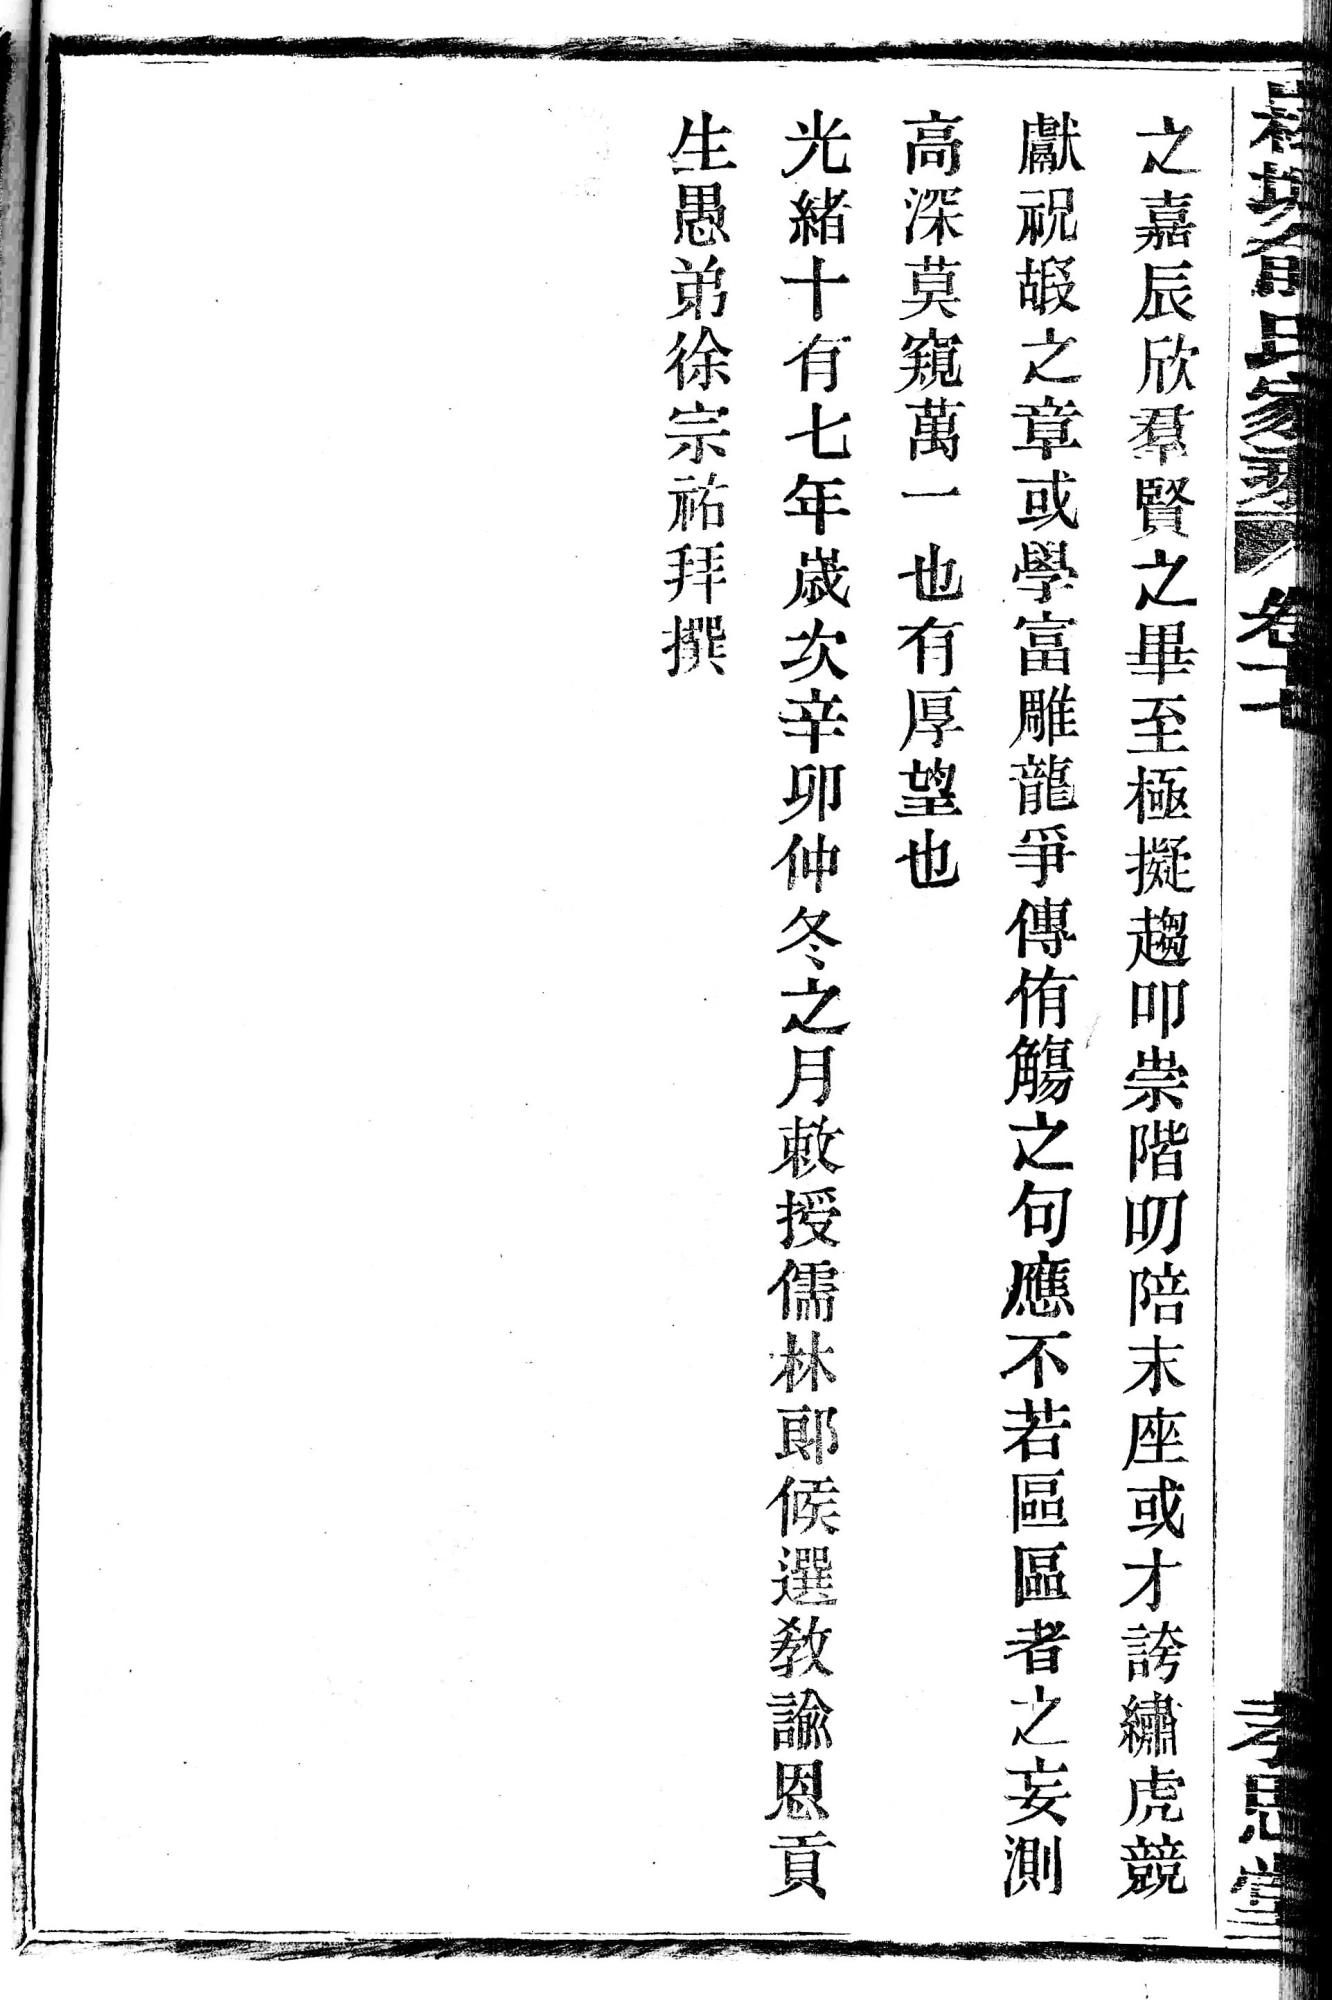 氏家乘 卷十七 孝思堂
之嘉辰欣羣賢之畢至極擬趨叩崇階叨陪末座或才誇繡虎競
獻祝嘏之章或學富雕龍爭傳侑觴之句應不若區區者之妄測
高深莫窺萬一也有厚望也
光緒十有七年歲次辛卯仲冬之月敕授儒林郎候選教諭恩貢
生愚弟徐宗祐拜撰